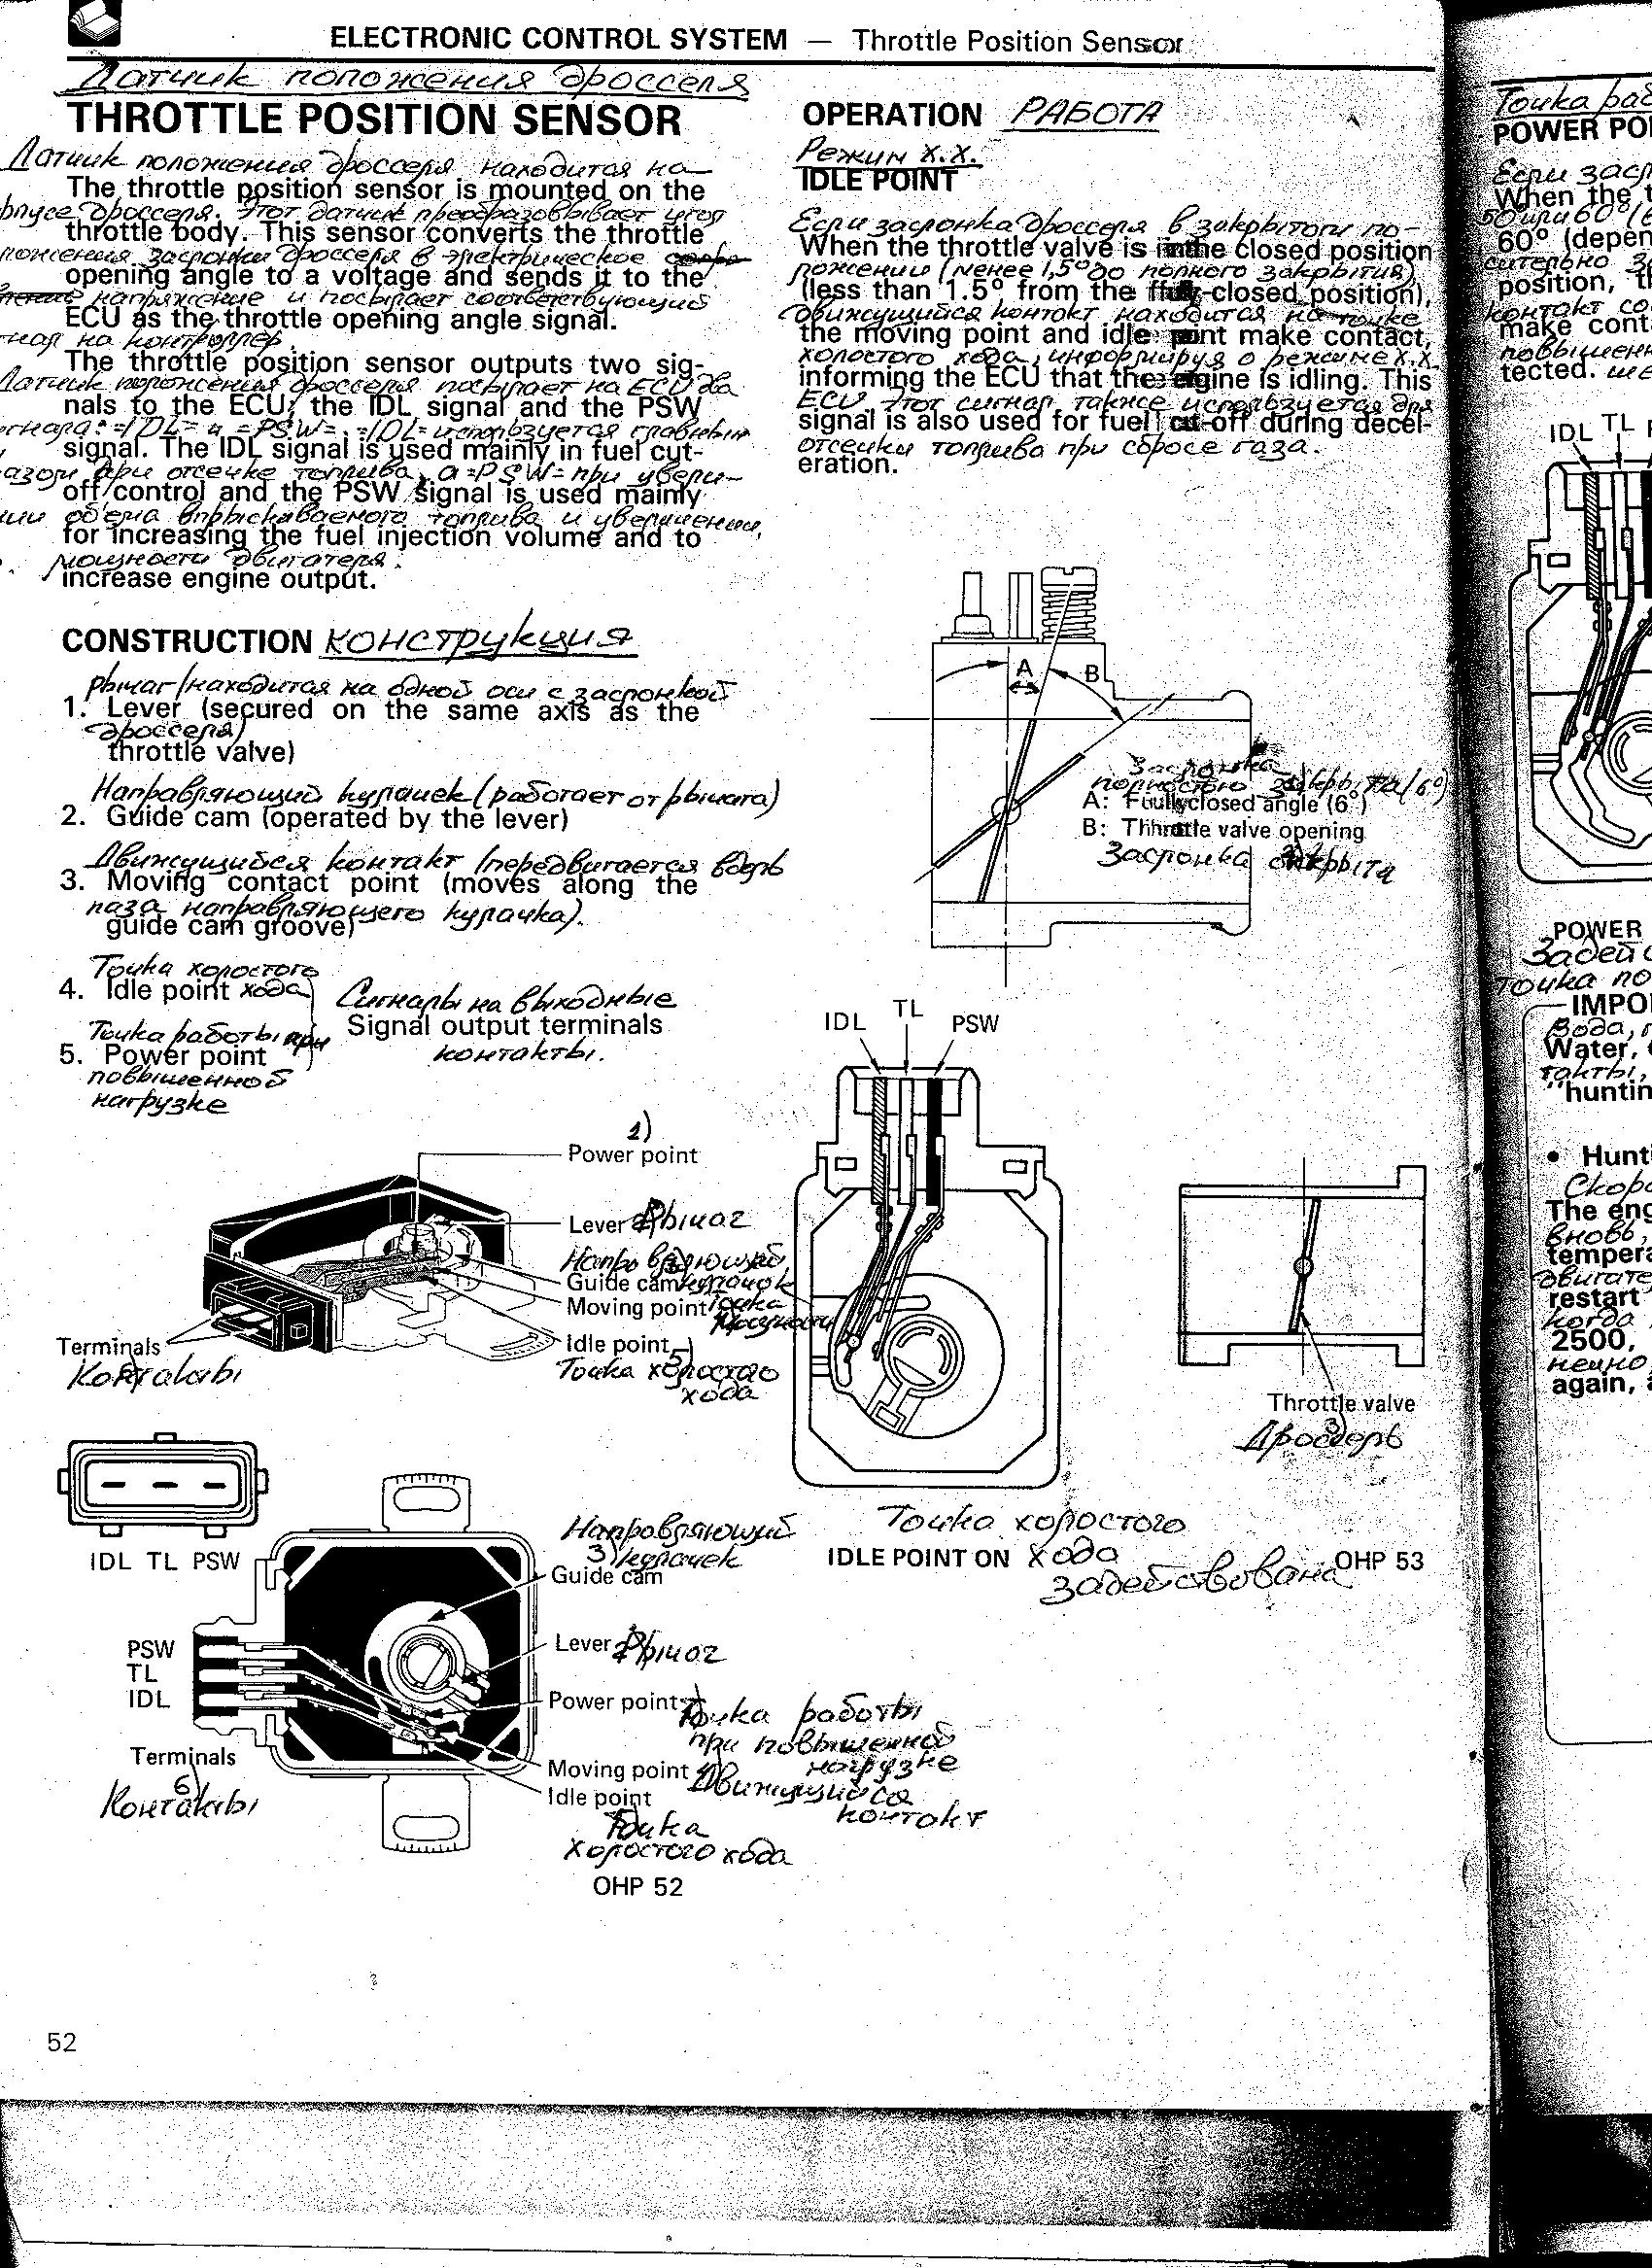 ELECTRONIC CONTROL SYSTEM — Throttle Position Sensor
Датчик положения дросселя
THROTTLE POSITION SENSOR
Датчик положения дросселя находится на
The throttle position sensor is mounted on the
дросселя. Этот датчик преобразовывает угол
throttle body. This sensor converts the throttle
заслонки дросселя в электрическое
opening angle to a voltage and sends it to the
напряжение и посылает соответствующий
ECU as the throttle opening angle signal.
на контроллер.
The throttle position sensor outputs two sig-
Датчик положения дросселя посылает на ECU два
nals to the ECU; the IDL signal and the PSW
=IDL= и =PSW=. =IDL= используется главным
signal. The IDL signal is used mainly in fuel cut-
при отсечке топлива, а =PSW= при увели-
off control and the PSW signal is used mainly
объема впрыскиваемого топлива и увеличении
for increasing the fuel injection volume and to
мощности двигателя.
increase engine output.
CONSTRUCTION КОНСТРУКЦИЯ
Рычаг (находится на одной оси с заслонкой
1. Lever (secured on the same axis as the
дросселя)
throttle valve)
Направляющий кулачек (работает от рычага)
2. Guide cam (operated by the lever)
Движущийся контакт (передвигается вдоль
3. Moving contact point (moves along the
паза направляющего кулачка).
guide cam groove)
Точка холостого
4. Idle point хода
Сигналы на выходные
Signal output terminals
контакты.
Точка работы при
5. Power point
повышенной
нагрузке
1)
Power point
Lever Рычаг
Направляющий
Guide cam кулачок
Moving point Точка
Idle point 5)
Точка холостого
хода
Terminals
Контакты
IDL TL PSW
Направляющий
3) кулачек
Guide cam
PSW
TL
IDL
Lever Рычаг
Power point Точка работы
при повышенной
нагрузке
Terminals
6)
Контакты
Moving point Движущийся
контакт
Idle point
Точка
холостого хода
OHP 52
52
OPERATION РАБОТА
Режим х.х.
IDLE POINT
Если заслонка дросселя в закрытом по-
When the throttle valve is in the closed position
ложении (менее 1,5° до полного закрытия)
(less than 1.5° from the fully-closed position),
движущийся контакт находится на точке
the moving point and idle point make contact,
холостого хода, информируя о режиме х.х.
informing the ECU that the engine is idling. This
ECU. Этот сигнал также используется для
signal is also used for fuel cut-off during decel-
отсечки топлива при сбросе газа.
eration.
A B
Заслонка
полностью закрыта (6°)
A: Fully closed angle (6°)
B: Throttle valve opening
Заслонка открыта
IDL TL PSW
Throttle valve
3)
Дроссель
Точка холостого
IDLE POINT ON хода
задействована
OHP 53
Точка раб
POWER POI
Если засл
When the t
50 или 60° (
60° (depen
сительно з
position, th
контакт со
make cont
повышенн
tected.
IDL TL
POWER
Задейс
Точка по
IMPO
Вода,
Water,
такты,
"huntin
• Hunt
Скоро
The eng
вновь,
tempera
двигате
restart
когда
2500,
again, a